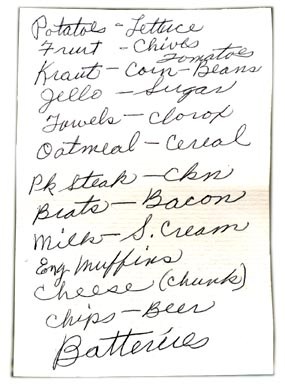 Potatoes - Lettuce
Fruit - Chives
Tomatoes
Kraut - Corn - Beans
Jello - Sugar
Towels - Clorox
Oatmeal - Cereal
Pk Steak - Ckn
Brats - Bacon
Milk - S. Cream
Eng Muffins
Cheese (Chunk)
Chips - Beer
Batteries